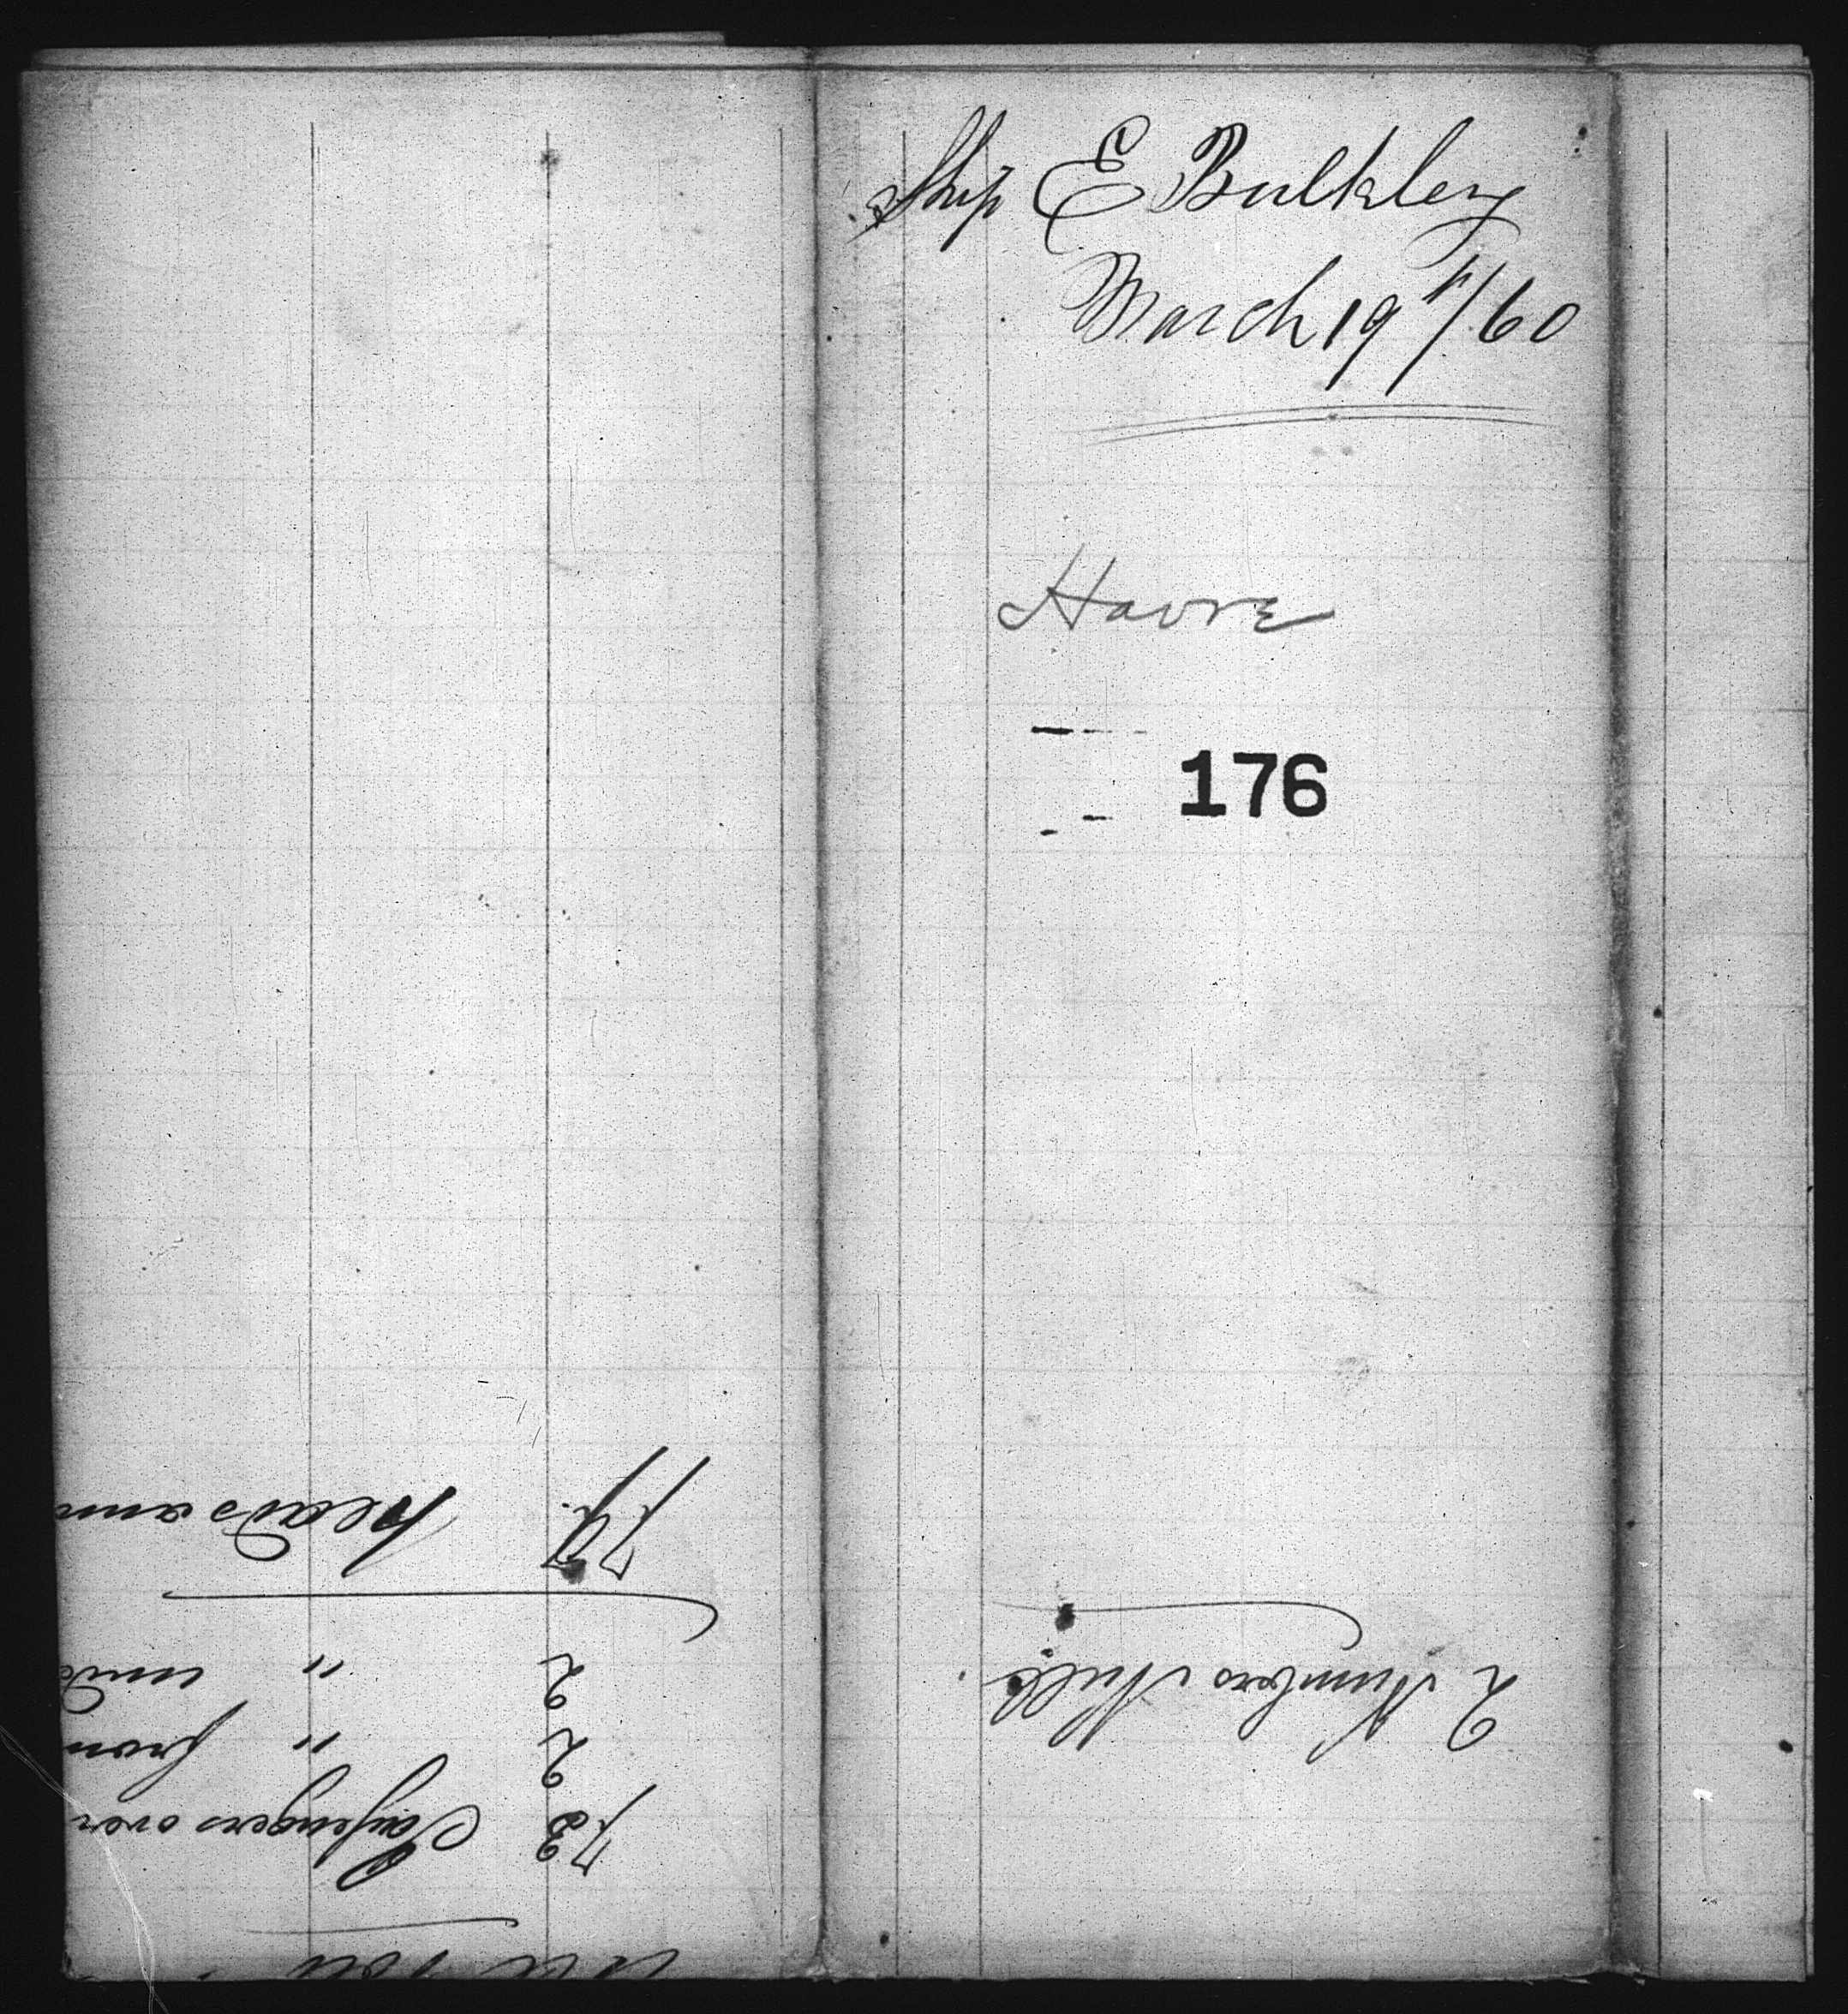 Ship E Bulkley
March 19th/60
Havre
176
2 Numbers Null.
73 Passengers over
2 " from
2 " und
77. heads